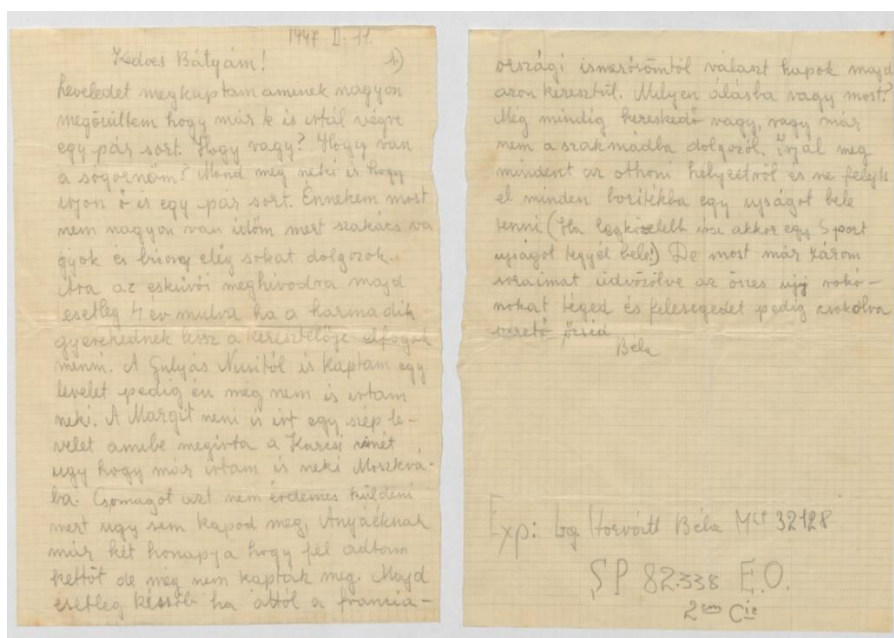 1947 II. 11.
Kedves Bátyám! 1)
Leveledet megkaptam aminek nagyon
megörültem hogy már k is irtál végre
egy pár sort. Hogy vagy? Hogy van
a sógornőm? Mond meg neki is hogy
irjon ő is egy pár sort. Énnekem most
nem nagyon van időm mert szakács va
gyok és elég sokat dolgozok.
Ara az esküvői meghivodra majd
esetleg 4 év mulva ha a harmadik
gyerekednek lessz a keresztelője elfogok
menni. A Gulyás Nusitól is kaptam egy
levelet pedig én még nem is irtam
neki. A Margit neni is irt egy szép le-
velet amibe megirta a Karcsi
ugy hogy már irtam is neki Moszkvá-
ba. Csomagot azt nem érdemes küldeni
mert ugy sem kapod meg, Anyáéknak
már két honapja hogy fél adtam
kettőt de még nem kapták meg. Majd
esetleg később ha attól a francia-
országi ismerősömtől választ kapok majd
azon keresztül. Milyen álásba vagy most?
Még mindig kereskedő vagy, vagy már
nem a szakmádba dolgozol. Irjál meg
mindent az othoni helyzetről és ne felejts
el minden boritékba egy ujságot bele
tenni (Ha legközelebb irsz akkor egy Sport
ujságot tegyél bele!) De most már zárom
soraimat üdvözölve az összes uj roko-
nokat téged és feleségedet pedig csokólva
szerető öcséd
Béla
Exp: Lg. Horváth Béla Mle 32128
SP 82.338 E.O.
2em Cie